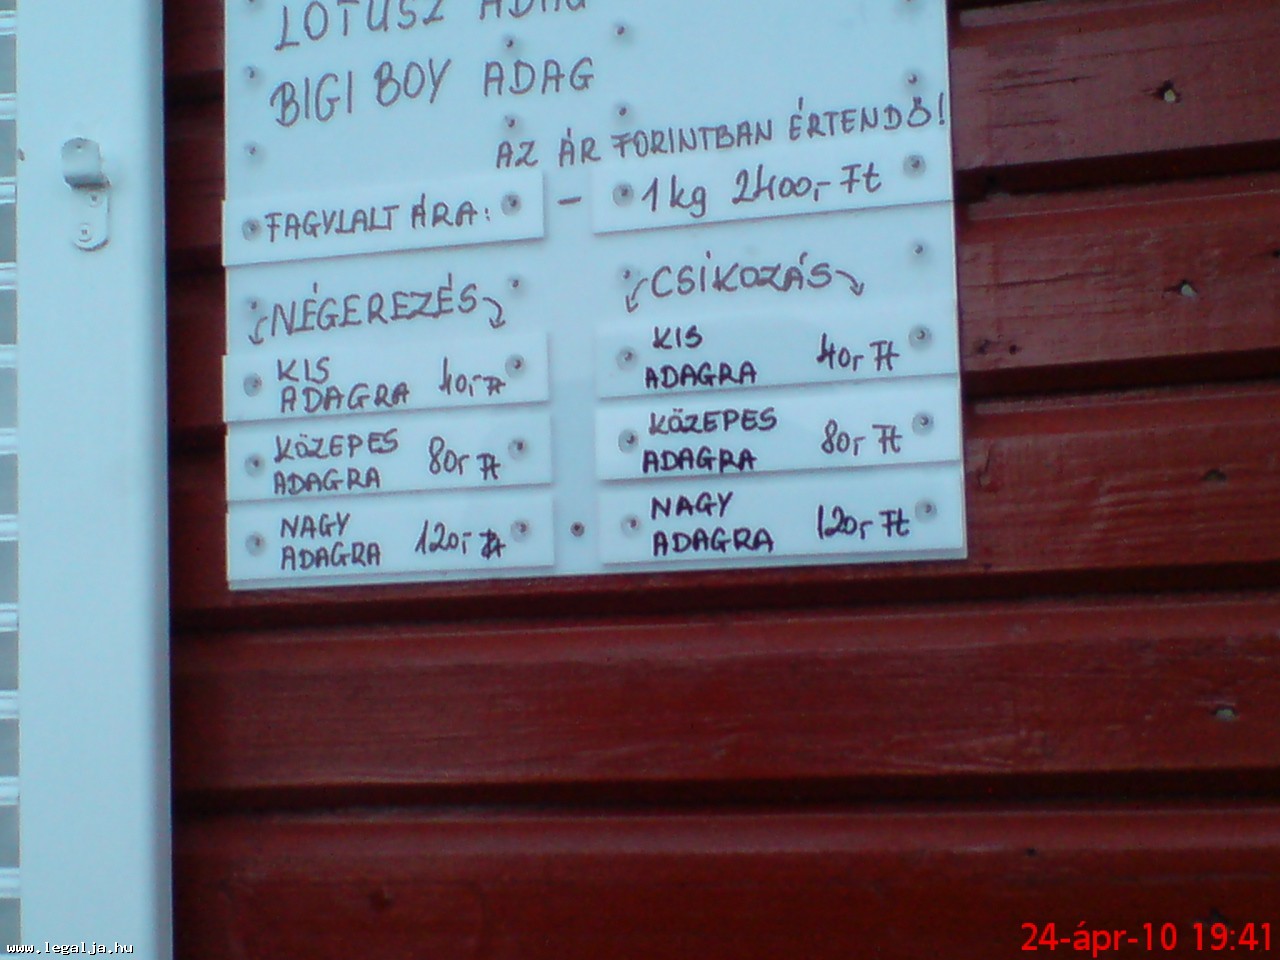 LOTUSZ ADAG
BIGI BOY ADAG
AZ ÁR FORINTBAN ÉRTENDŐ!
FAGYLALT ÁRA: - 1 kg 2400,- Ft
NÉGEREZÉS
KIS
ADAGRA 40,- Ft
KÖZEPES
ADAGRA 80,- Ft
NAGY
ADAGRA 120,- Ft
CSÍKOZÁS
KIS
ADAGRA 40,- Ft
KÖZEPES
ADAGRA 80,- Ft
NAGY
ADAGRA 120,- Ft
www.legalja.hu
24-ápr-10 19:41